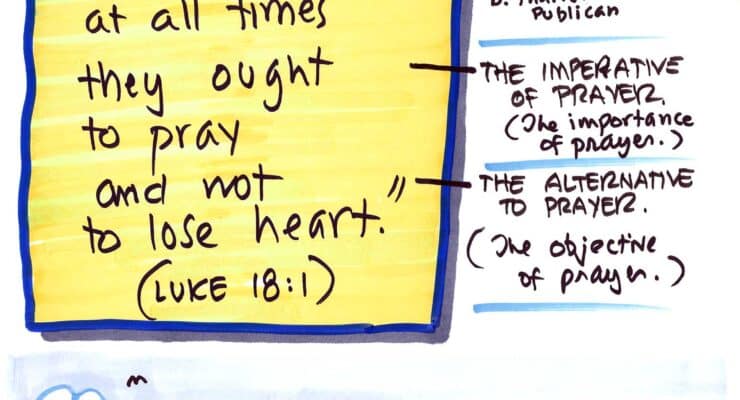 at all times
they ought
to pray
and not
to lose heart."
(LUKE 18:1)
PUBLICAN
THE IMPERATIVE
OF PRAYER.
(The importance
of prayer.)
THE ALTERNATIVE
TO PRAYER.
(The objective
of prayer.)